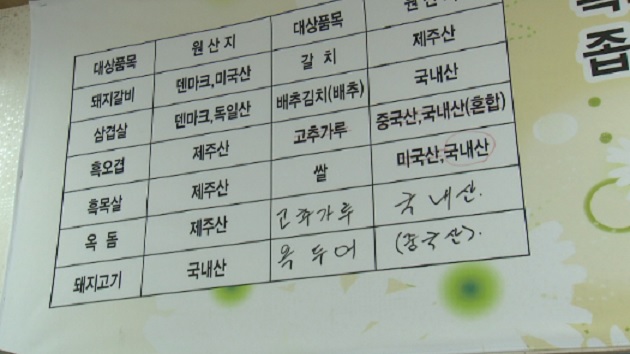 대상품목 원산지 대상품목 원산지
돼지갈비 덴마크,미국산 갈치 제주산
삼겹살 덴마크,독일산 배추김치(배추) 국내산
흑오겹 제주산 고추가루 중국산,국내산(혼합)
흑목살 제주산 쌀 미국산,국내산
옥돔 제주산 고추가루 국내산.
돼지고기 국내산 옥두어 (중국산).